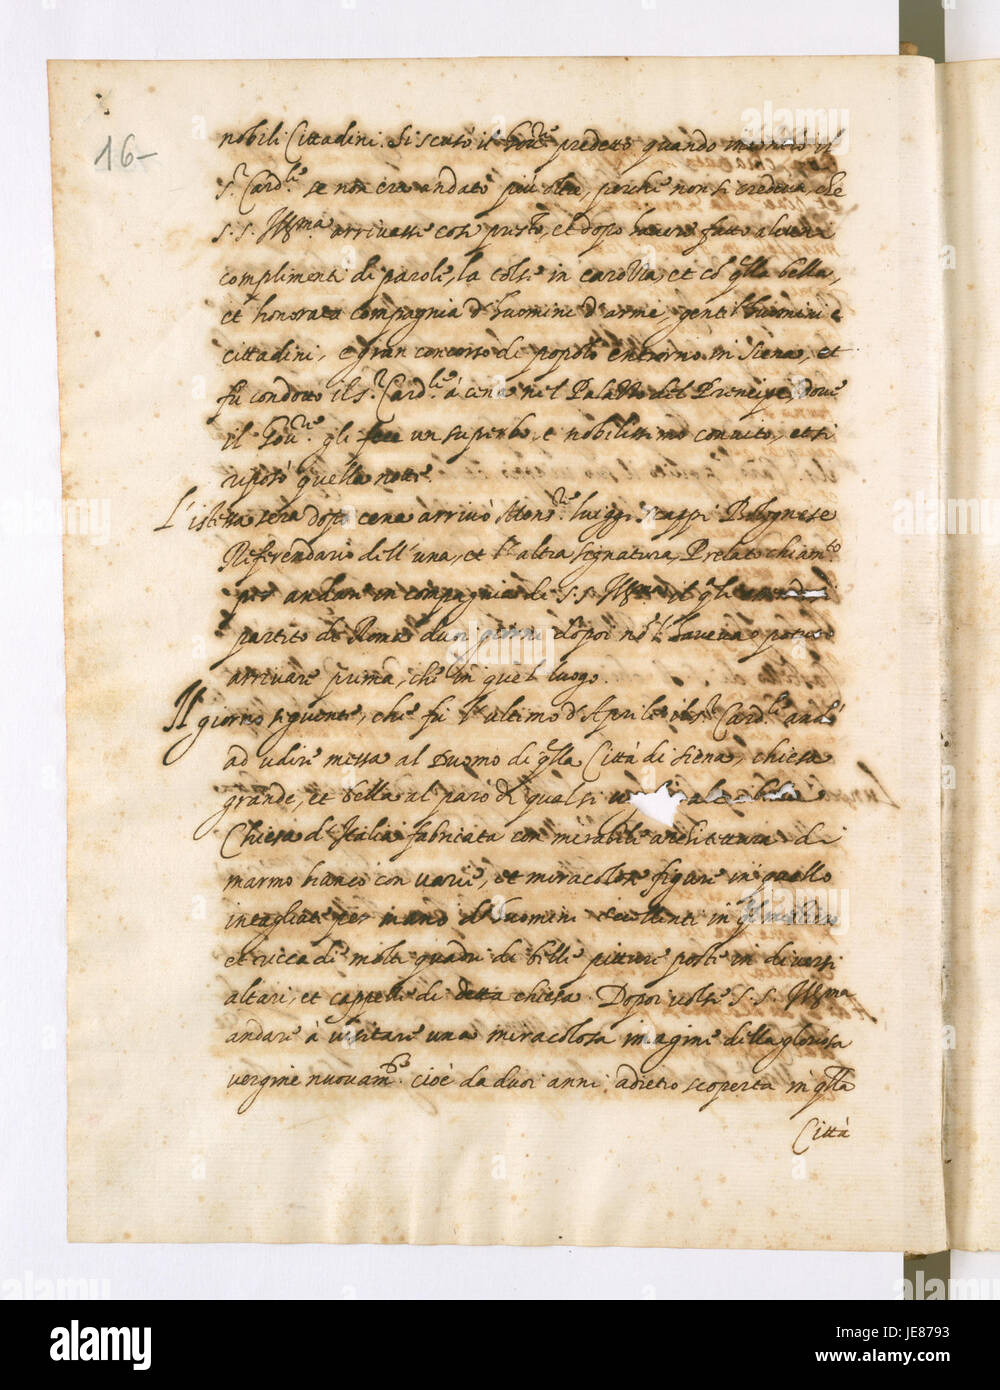 16-
nobili Cittadini. Si scusò il Gou.re predetto quando incontrò il
s.r Card.le se non era andato più oltre, perche non si credeua, che
S. S. Ill.ma arriuasse così presto, et dopo hauere fatto alcuni
complimenti di parole, la tolse in carozza, et cō q̄lla bella,
et honorata compagnia d'huomini d'arme, gentil'huomini e
cittadini, e gran concorso di popolo entrorno in Siena, et
fù condotto il s.r Card.le à cena nel Palazzo del Prencipe, doue
il Gou.re gli fece un superbo, et nobilissimo conuito, et si
riposò quella notte.
L'istessa sera dopo cena arriuò Mons.re luiggi scappi Bolognese
Referendario dell'una, et l'altra signatura, Prelato chiam.to
per andare in compagnia di S. S. Ill.ma il q̄le
partito di Roma duoi giorni dopoi nō l'haueua potuto
arriuare prima, che in quel luogo.
Il giorno seguente, che fù l'ultimo d'Aprile il s.r Card.le andò
ad udire messa al Duomo di q̄lla Città di Siena, chiesa
grande, et bella al paro di qual si
Chiesa d'Italia fabricata con mirabile architettura di
marmo bianco con uarie, et miracolose figure in quello
intagliate per mano d'huomini eccellenti in q̄l mestiero
et ricca di molti quadri di belle pitture poste in diuersi
altari, et cappelle di detta chiesa. Dopoi uolse S. S. Ill.ma
andare à uisitare una miracolosa imagine della gloriosa
uergine nuouam.te cioè da duoi anni adietro scoperta in q̄lla
Città
alamy
JE8793
www.alamy.com